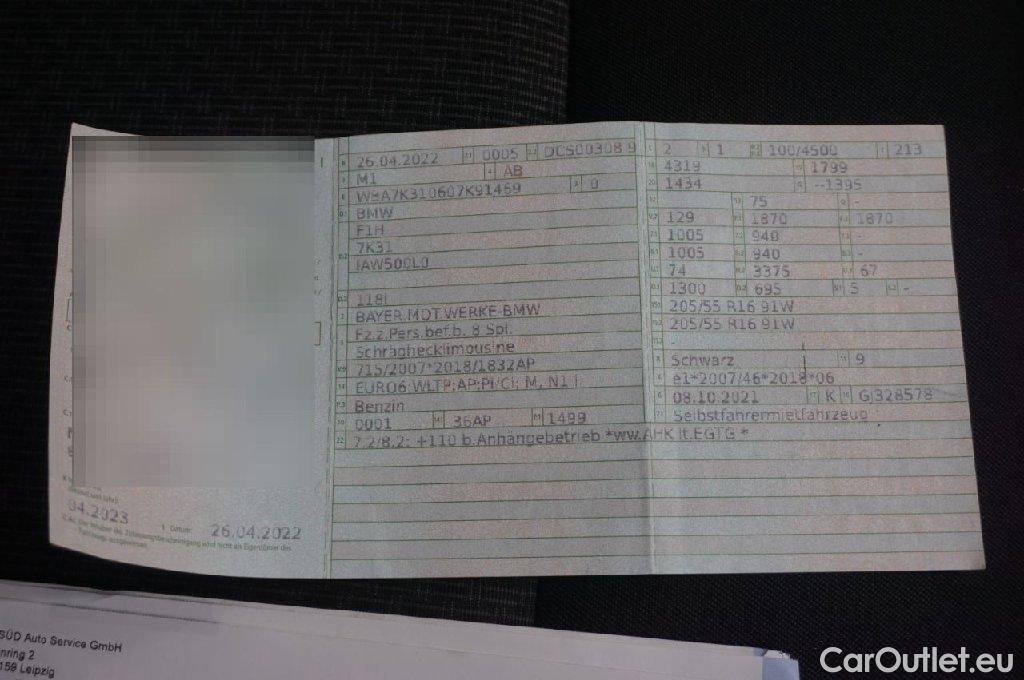 26.04.2022 0005 DCS00308 9
M1 AB
WBA7K310607K91469 0
BMW
F1H
7K31
IAW500L0
118i
BAYER.MOT.WERKE-BMW
Fz.z.Pers.bef.b. 8 Spl.
Schräghecklimousine
715/2007*2018/1832AP
EURO6;WLTP;AP;PI/CI; M, N1 I
Benzin
0001 36AP 1499
7.2/8.2: +110 b.Anhängebetrieb *ww.AHK lt.EGTG *
2 1 100/4500 213
4319 1799
1434 --1395
75 -
129 1870 1870
1005 940 -
1005 940 -
74 3375 67
1300 695 5 -
205/55 R16 91W
205/55 R16 91W
-
Schwarz 9
e1*2007/46*2018*06
08.10.2021 K GJ328578
Selbstfahrermietfahrzeug
04.2023
Datum: 26.04.2022
C.4c Der Inhaber der Zulassungsbescheinigung wird nicht als Eigentümer des
Fahrzeugs ausgewiesen.
SÜD Auto Service GmbH
nring 2
159 Leipzig
CarOutlet.eu